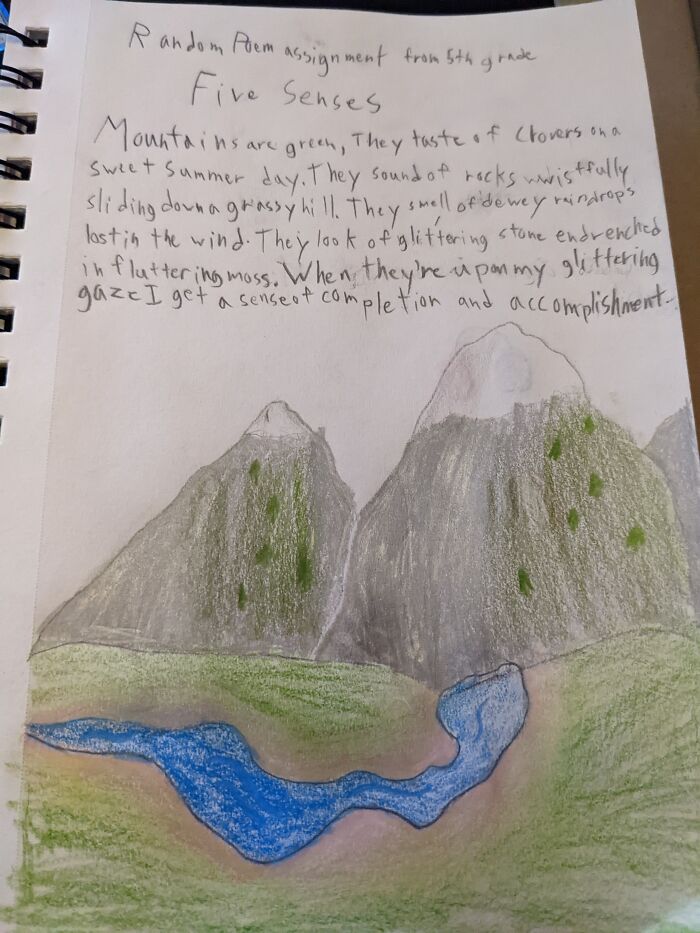 Random Poem assignment from 5th grade
Five Senses
Mountains are green, They taste of Clovers on a
sweet summer day. They sound of rocks wistfully
sliding down a grassy hill. They smell of dewey raindrops
lost in the wind. They look of glittering stone endrenched
in fluttering moss. When they're upon my glittering
gaze I get a sense of completion and accomplishment.